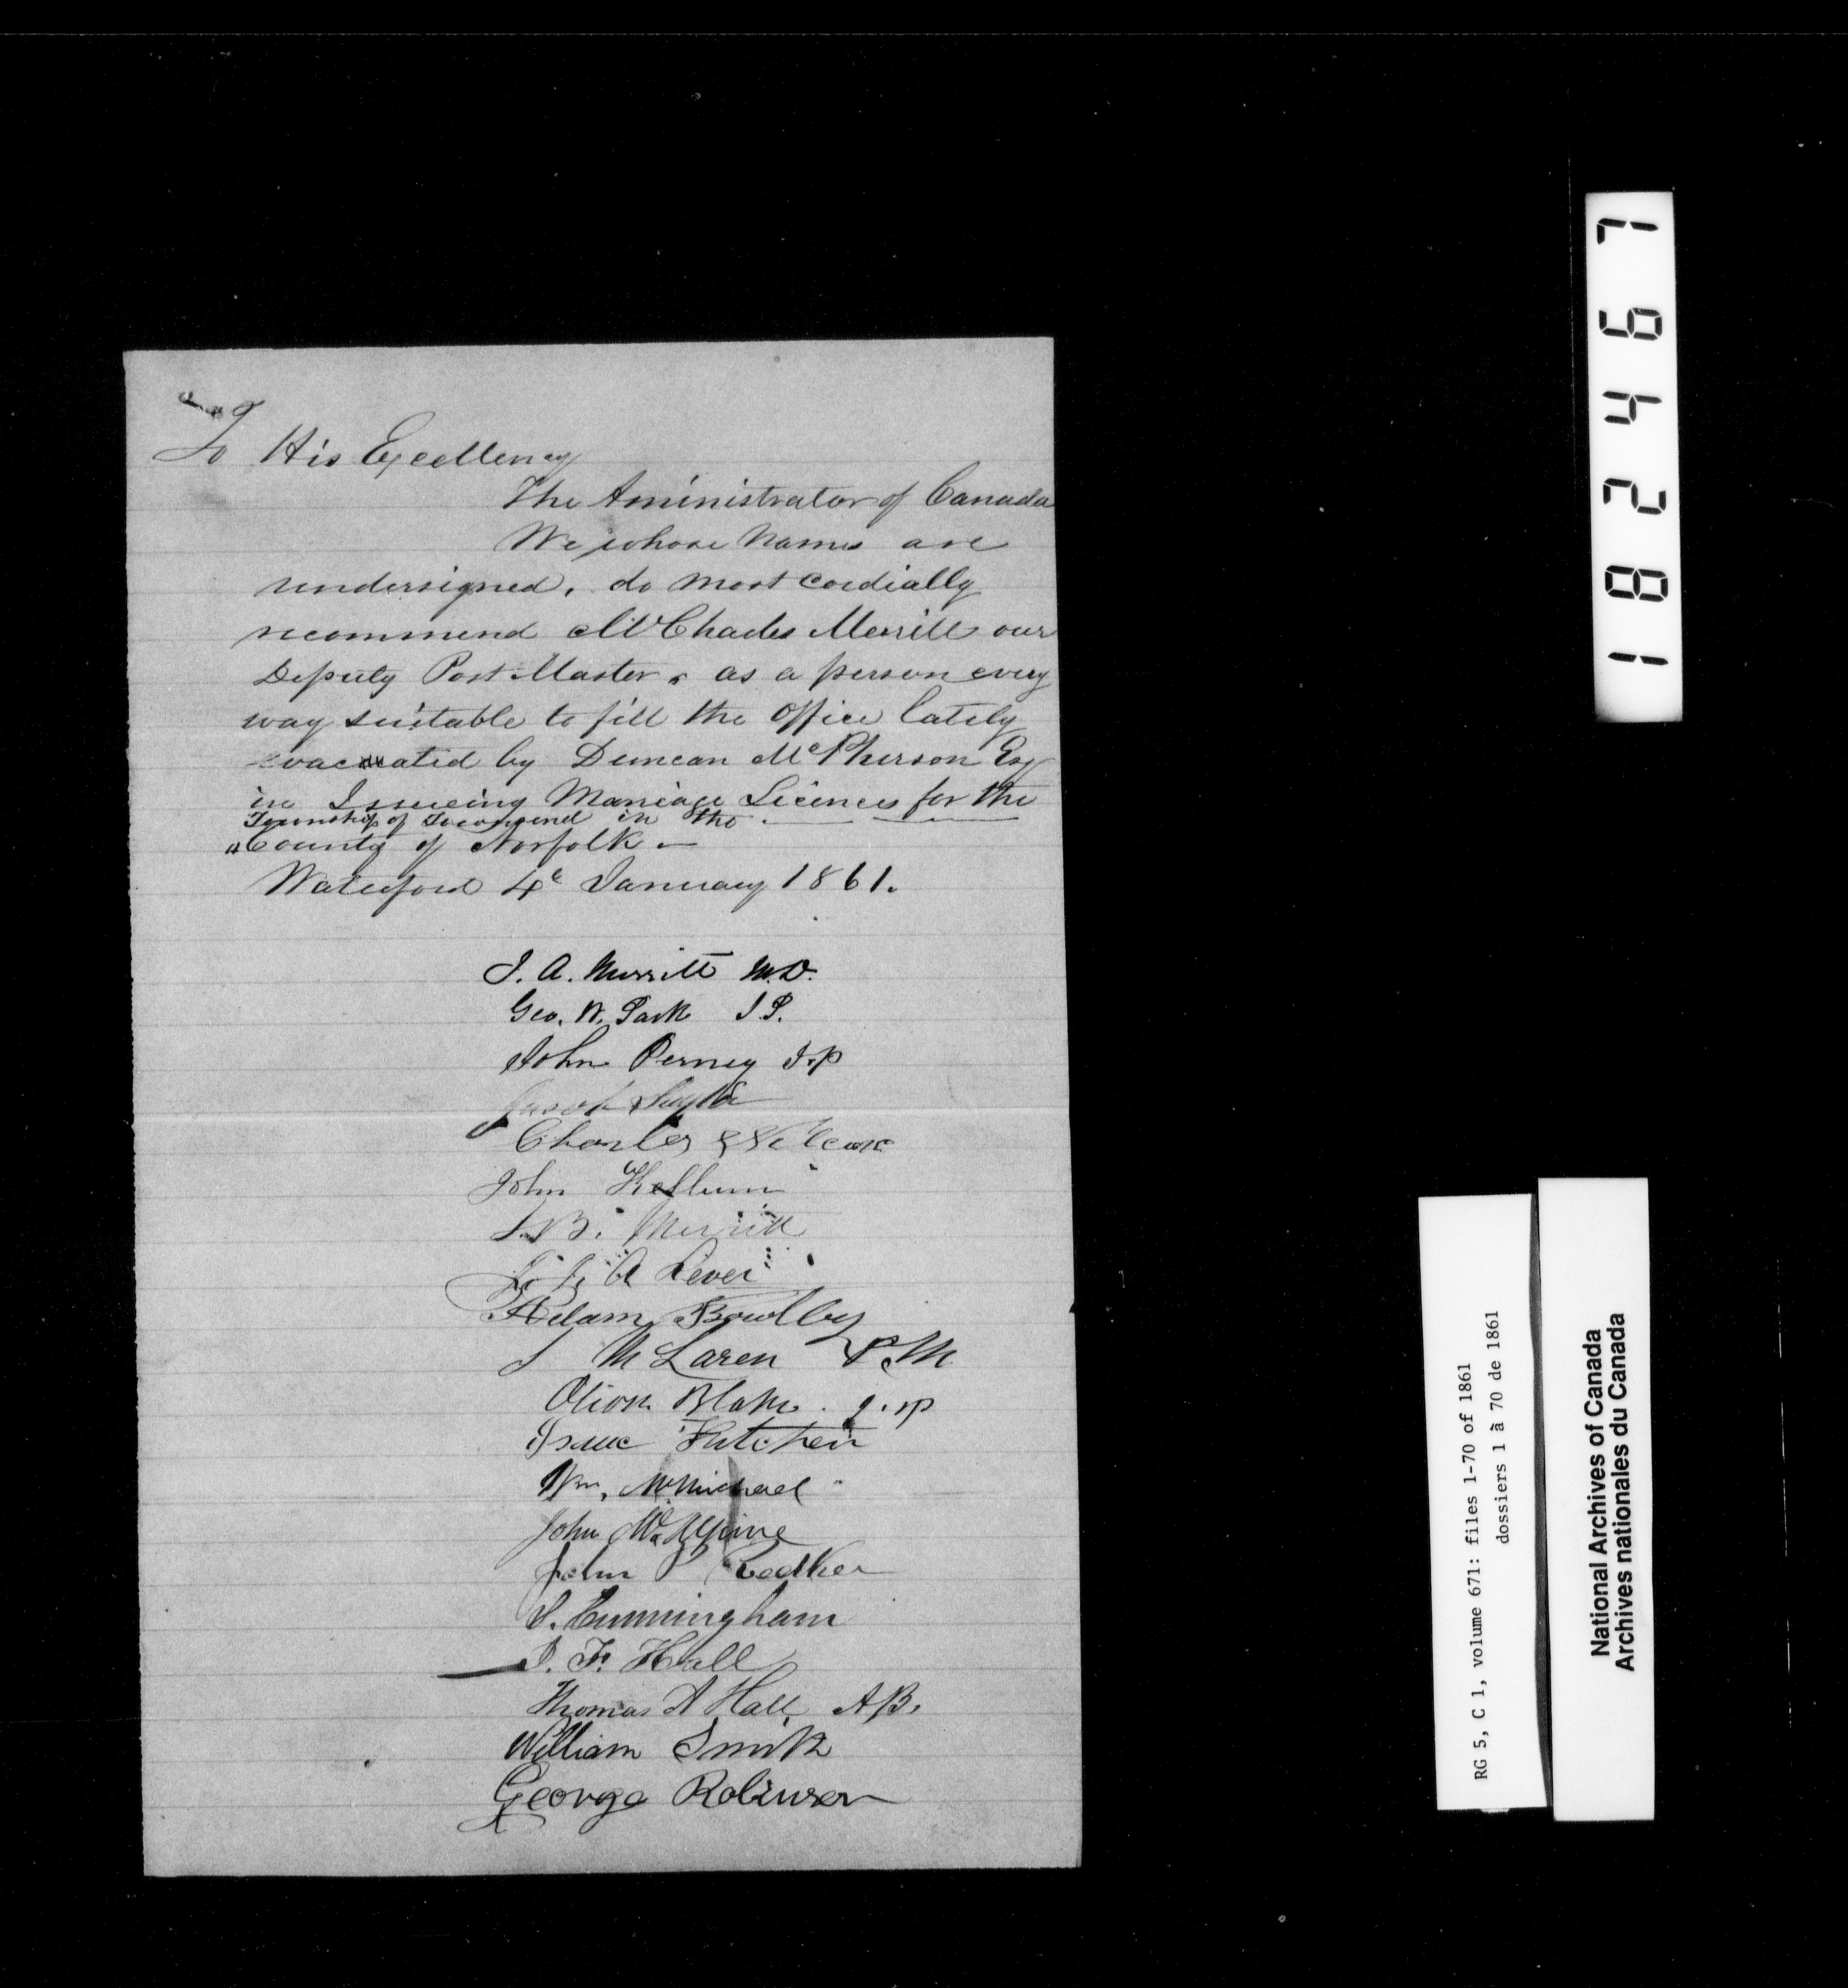 To His Excellency
The Aministrator of Canada
We whose Names are
undersigned, do most cordially
recommend Mr Charles Merrill our
Deputy Post Master, as a person every
way suitable to fill the office lately
evacuated by Duncan McPherson Esq
in Issueing Marriage Licences for the
Township of Townsend in the
County of Norfolk
Waterford 4th January 1861.
J. A. Merritt M.D.
Geo. W. Park J.P.
John Perney J.P
Charles Wilcox
John Kellum
J. B. Merritt
A Lever
Adam Bowlby
J McLaren P.M
Blake J.P
Isaac Hutchen
Wm. McMichael
John McAlpine
John
J. Cunningham
J. F. Hall
Thomas A Hall A.B.
William Smith
George Robinson
182467
RG 5, C 1, volume 671: files 1-70 of 1861
dossiers 1 à 70 de 1861
National Archives of Canada
Archives nationales du Canada